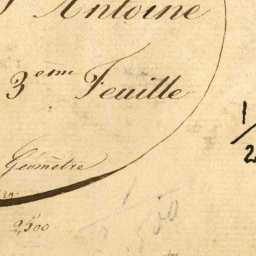 Antoine
3eme Feuille
1/2
Géomètre
2,500